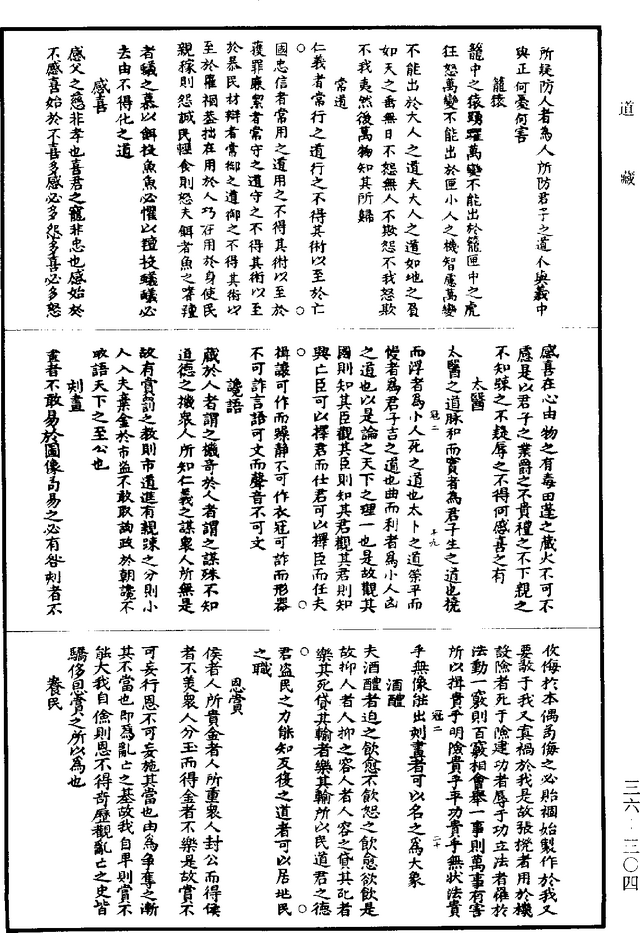 道藏
所疑防人者為人所防君子之道仆與義中
與正何憂何害
籠猿
籠中之猿踴躍萬變不能出於籠匣中之虎
狂怒萬變不能出於匣小人之機智慮萬變
不能出於大人之道夫大人之道如地之負
如天之垂無日不怨無人不欺怨不我怒欺
不我夷然後萬物知其所歸
常道
仁義者常行之道行之不得其術以至於亡
國忠信者常用之道用之不得其術以至於
獲罪廉絜者常守之道守之不得其術以至
於暴民材辯者常御之道御之不得其術以
至於罹禍蓋拙在用於人巧在用於身使民
親稼則怨誡民輕食則怒夫餌者魚之嗜羶
者蟻之慕以餌投魚魚必懼以羶投蟻蟻必
去由不得化之道
感喜
感父之慈非孝也喜君之寵非忠也感始於
不感喜始於不喜多感必多怨多喜必多怒
感喜在心由物之有毒由蓬之藏火不可不
慮是以君子之業爵之不貴禮之不下親之
不知疎之不疑辱之不得何感喜之有
太醫
太醫之道脉和而實者為君子生之道也撓
而浮者為小人死之道也太卜之道策平而
冠二
十九
慢者為君子吉之道也曲而利者為小人凶
之道也以是論之天下之理一也是故觀其
國則知其臣觀其臣則知其君觀其君則知
興亡臣可以擇君而仕君可以擇臣而任夫
揖讓可作而躁靜不可作衣冠可詐而形器
不可詐言語可文而聲音不可文
讒語
藏於人者謂之機奇於人者謂之謀殊不知
道德之機衆人所知仁義之謀衆人所無是
故有賞罰之教則市道進有親疎之分則小
人入夫棄金於市盜不敢取詢政於朝讒不
敢語天下之至公也
刻畫
畫者不敢易於圖像苟易之必有咎刻者不
敢侮於本偶苟侮之必貽禍始製作於我又
要敬于我又真禍於我是故張機者用於機
設險者死于險建功者辱于功立法者罹於
法動一竅則百竅相會舉一事則萬事有害
所以機貴乎明險貴乎平功貴乎無狀法貴
冠二
二十
乎無像能出刻畫者可以名之為大象
酒醴
夫酒醴者迫之飲愈不飲怨之飲愈欲飲是
故抑人者人抑之容人者人容之貸其死者
樂其死貸其輸者樂其輸所以民道君之德
君盜民之力能知反復之道者可以居地民
之職
恩賞
侯者人所貴金者人所重衆人封公而得侯
者不美衆人分玉而得金者不樂是故賞不
可妄行恩不可妄施其當也由為爭奪之漸
其不當也即為亂亡之基故我自卑則賞不
能大我自儉則恩不得奇歷觀亂亡之史皆
驕侈恩賞之所以為也
養民
三六·三〇四